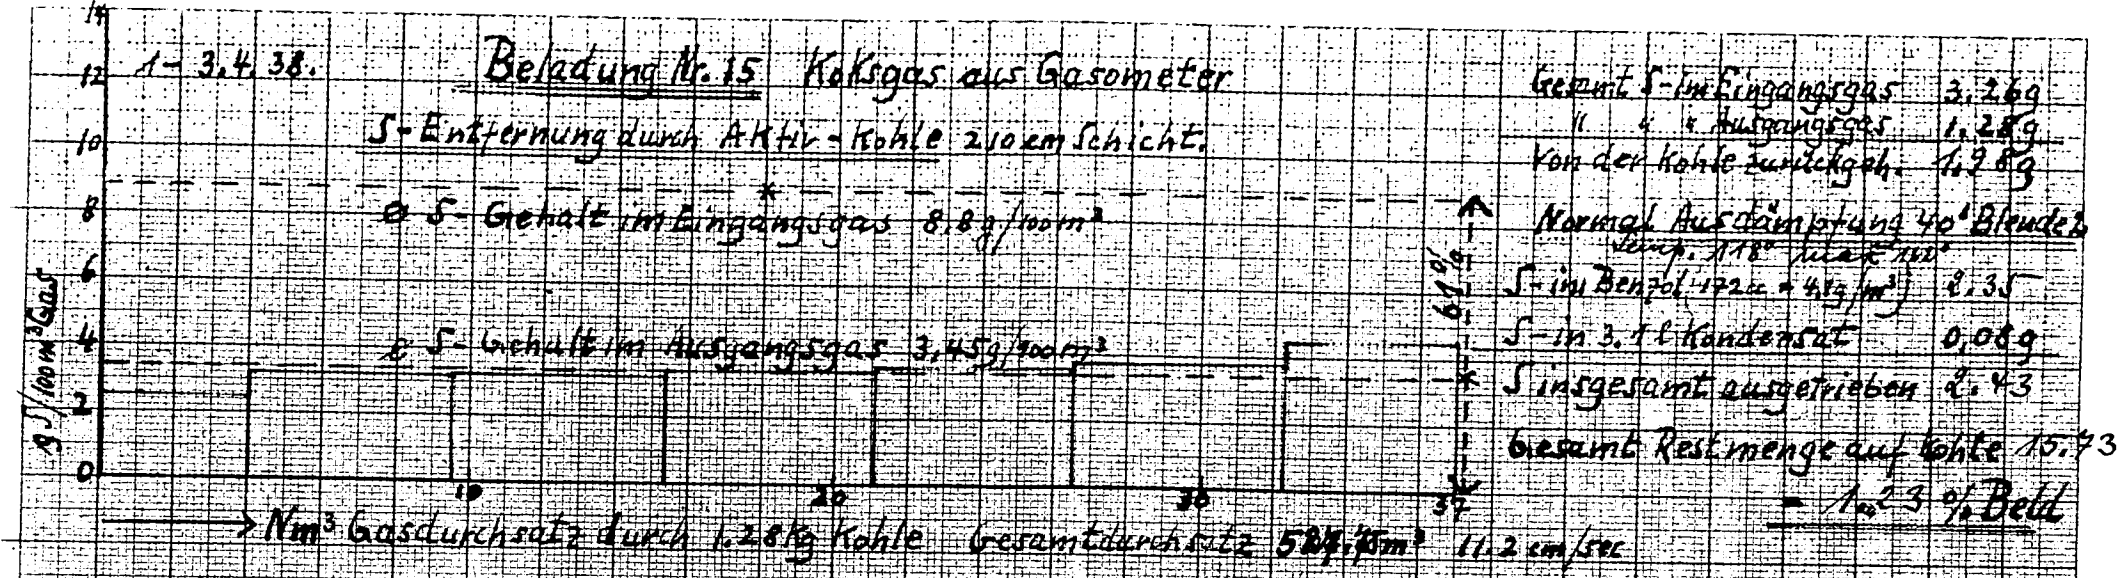 14
1-3.4.38.
Beladung Nr. 15 Koksgas aus Gasometer
12
S-Entfernung durch Aktiv-Kohle 210 cm Schicht.
10
8
ø S-Gehalt im Eingangsgas 8,8 g/100 m³
6
4
ø S-Gehalt im Ausgangsgas 3,45 g/100 m³
2
0
g S/100 m³ Gas
10
20
30
37
61 %
Nm³ Gasdurchsatz durch 1.28 kg Kohle Gesamtdurchsatz m³ 11.2 cm/sec
Gesamt S-im Eingangsgas 3.26g
" " " Ausgangsgas 1.28g
Von der Kohle zurückgeh. 1.98g
Normal Ausdämpfung 40'
Temp. 118° max
S-im Benzol 2.35
S-in 3.1 l Kondensat 0,08g
S insgesamt ausgetrieben 2.43
Gesamt Restmenge auf Kohle 15.73
= 1.23 % Beld